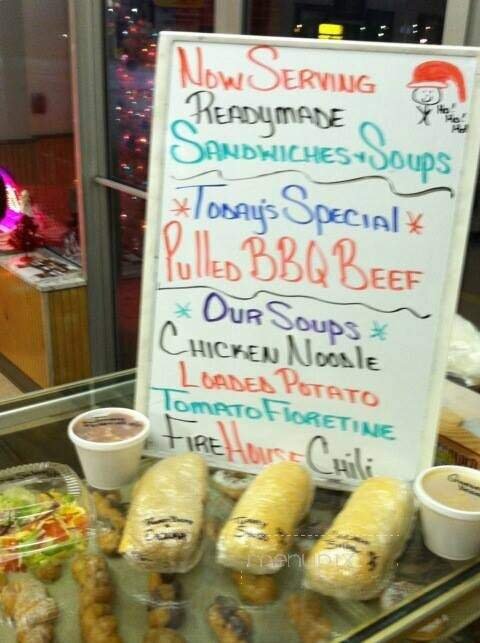 Now Serving
Readymade
Sandwiches + Soups
Ho!
Ho!
Ho!
*Today's Special*
Pulled BBQ Beef
* Our Soups *
Chicken Noodle
Loaded Potato
Tomato Floretine
FireHouse Chili
menupix